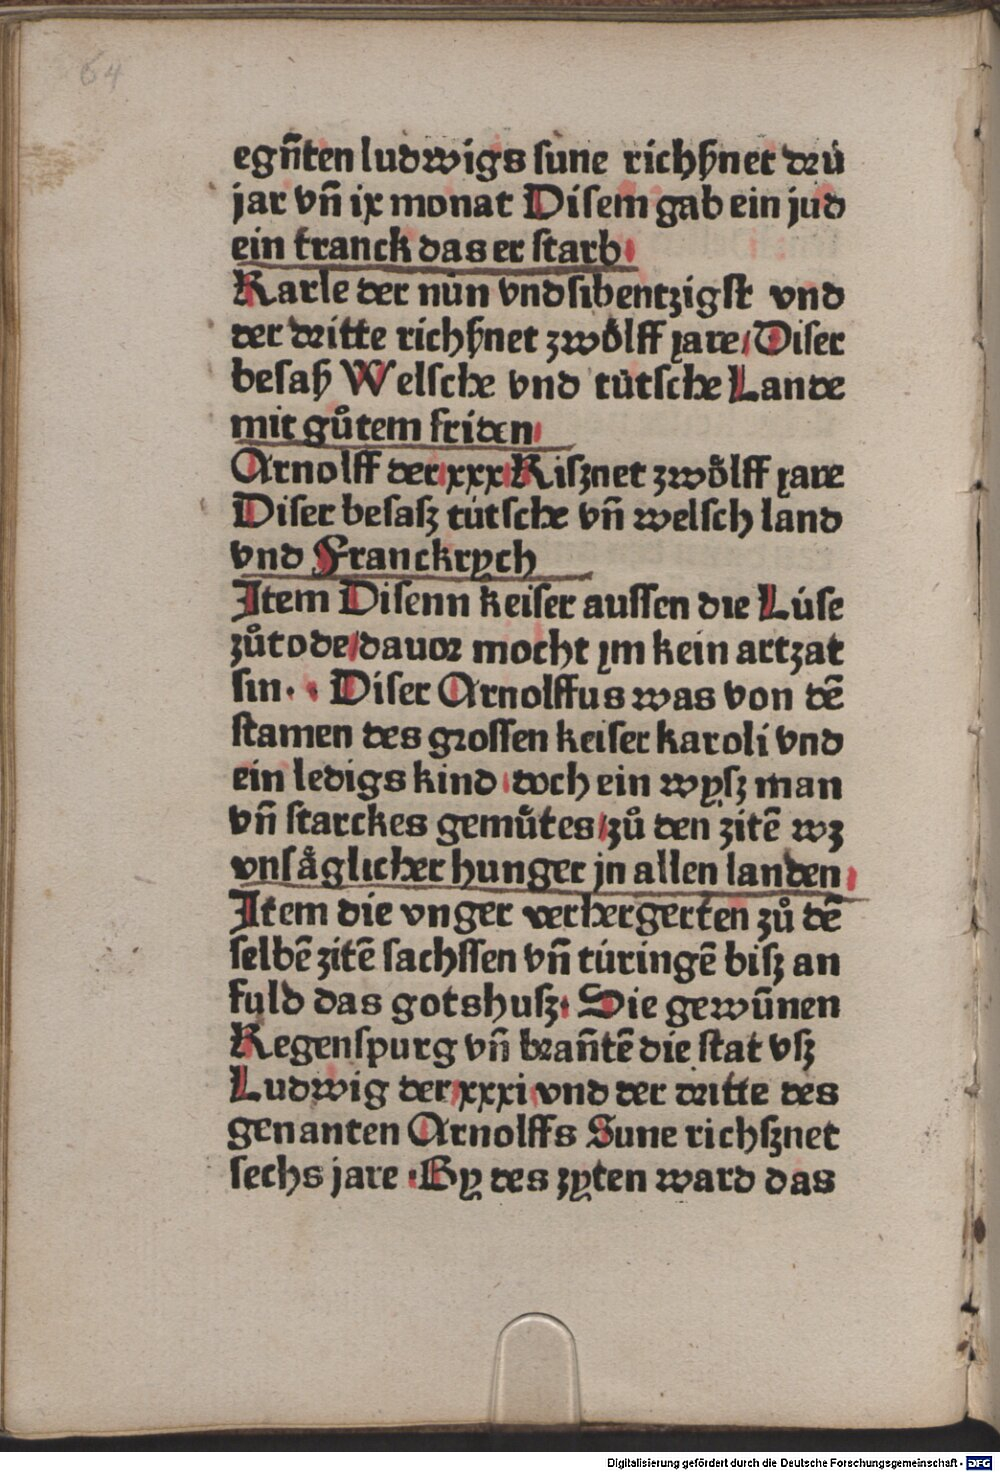 64
egn̄ten ludwigs sune richßnet drü
jar vn̄ ix monat Disem gab ein jud
ein tranck das er starb
Karle der nün vnd sibentzigst vnd
der dritte richßnet zwölff yare / Diser
besaß Welsche vnd tütsche Lande
mit gůtem friden
Arnolff der xxx Risznet zwölff yare
Diser besasz tütsche vn̄ welsch land
vnd Franckrych
Item Disenn keiser aussen die Lüse
zů tode / dauor mocht ym kein artzat
sin · Diser Arnolffus was von dē
stamen des grossen keiser karoli vnd
ein ledigs kind doch ein wysz man
vn̄ starckes gemůtes / zů den zitē wz
vnsäglicher hunger jn allen landen
Item die vnger verhergerten zů dē
selbē zitē sachssen vn̄ türingē bisz an
fuld das gotshusz · Die gewūnen
Regenspurg vn̄ bran̄tē die stat vsz
Ludwig der xxxi vnd der dritte des
genanten Arnolffs Sune richsznet
sechs jare · By des zyten ward das
Digitalisierung gefördert durch die Deutsche Forschungsgemeinschaft - DFG